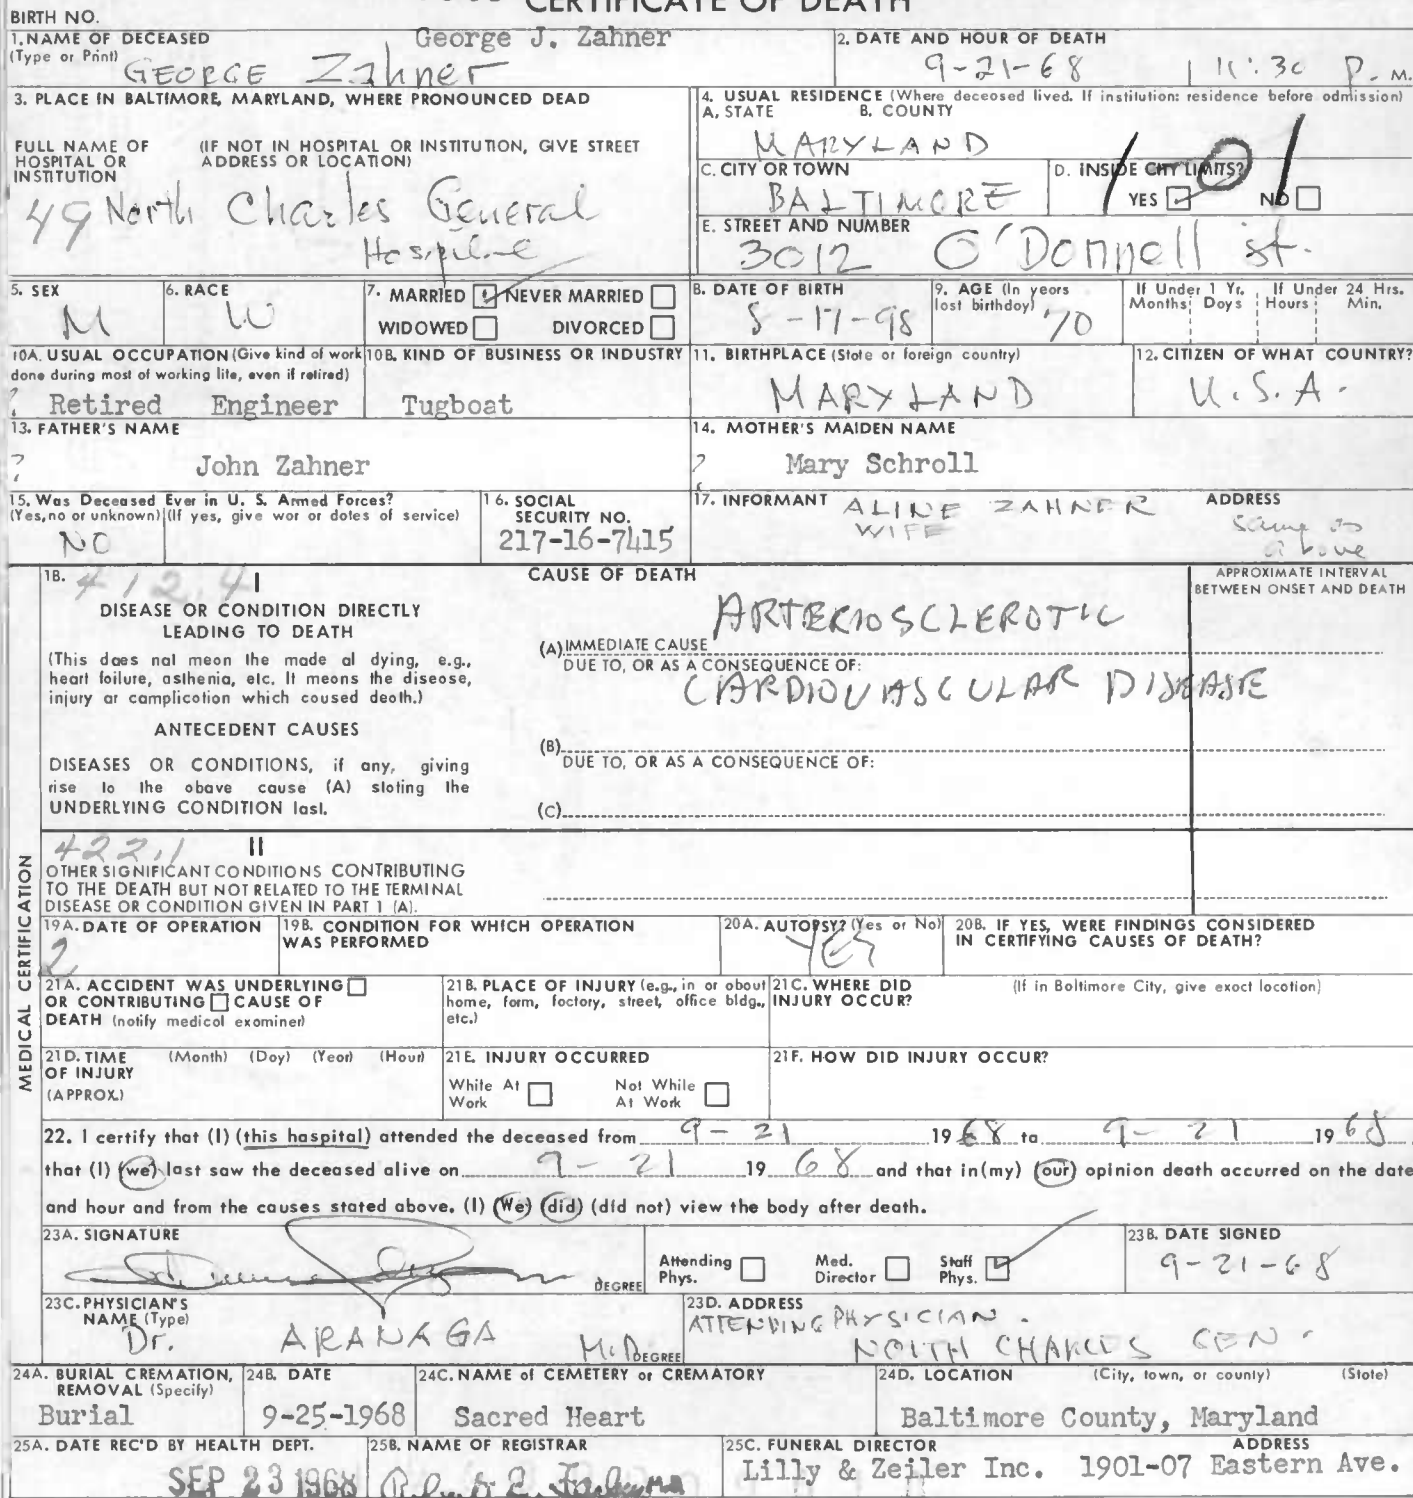 CERTIFICATE OF DEATH
BIRTH NO.
1. NAME OF DECEASED
(Type or Print)
George J. Zahner
GEORGE Zahner
2. DATE AND HOUR OF DEATH
9-21-68 11:30 P. M.
3. PLACE IN BALTIMORE, MARYLAND, WHERE PRONOUNCED DEAD
FULL NAME OF HOSPITAL OR INSTITUTION
(IF NOT IN HOSPITAL OR INSTITUTION, GIVE STREET ADDRESS OR LOCATION)
49 North Charles General
4. USUAL RESIDENCE (Where deceosed lived. If institution: residence before odmission)
A. STATE B. COUNTY
MARYLAND
C. CITY OR TOWN
BALTIMORE
D. INSIDE CITY LIMITS?
YES NO
E. STREET AND NUMBER
3012 O'Donnell st.
5. SEX
M
6. RACE
W
7. MARRIED NEVER MARRIED
WIDOWED DIVORCED
8. DATE OF BIRTH
8-17-98
9. AGE (In yeors lost birthdoy)
70
If Under 1 Yr. Months Doys
If Under 24 Hrs. Hours Min.
10A. USUAL OCCUPATION (Give kind of work done during most of working life, even if retired)
? Retired Engineer
10B. KIND OF BUSINESS OR INDUSTRY
Tugboat
11. BIRTHPLACE (Stote or foreign country)
MARYLAND
12. CITIZEN OF WHAT COUNTRY?
U.S.A.
13. FATHER'S NAME
? John Zahner
14. MOTHER'S MAIDEN NAME
? Mary Schroll
15. Was Deceased Ever in U. S. Armed Forces?
(Yes, no or unknown) (If yes, give wor or dotes of service)
NO
16. SOCIAL SECURITY NO.
217-16-7415
17. INFORMANT
ALINE ZAHNER
WIFE
ADDRESS
same as
above
18. 412.4 I
DISEASE OR CONDITION DIRECTLY
LEADING TO DEATH
(This does nol meon lhe made al dying, e.g.,
heart foilure, aslhenia, elc. It meons the diseose,
injury ar camplicotion which coused deoth.)
ANTECEDENT CAUSES
DISEASES OR CONDITIONS, if any, giving
rise lo lhe obave cause (A) sloting the
UNDERLYING CONDITION lasl.
CAUSE OF DEATH
APPROXIMATE INTERVAL
BETWEEN ONSET AND DEATH
ARTERIOSCLEROTIC
(A) IMMEDIATE CAUSE
DUE TO, OR AS A CONSEQUENCE OF:
CARDIOVASCULAR DISEASE
(B)
DUE TO, OR AS A CONSEQUENCE OF:
(C)
MEDICAL CERTIFICATION
422.1 II
OTHER SIGNIFICANT CONDITIONS CONTRIBUTING
TO THE DEATH BUT NOT RELATED TO THE TERMINAL
DISEASE OR CONDITION GIVEN IN PART 1 (A).
19A. DATE OF OPERATION
2
19B. CONDITION FOR WHICH OPERATION
WAS PERFORMED
20A. AUTOPSY? (Yes or No)
YES
20B. IF YES, WERE FINDINGS CONSIDERED
IN CERTIFYING CAUSES OF DEATH?
21A. ACCIDENT WAS UNDERLYING
OR CONTRIBUTING CAUSE OF
DEATH (notify medicol exominer)
21B. PLACE OF INJURY (e.g., in or obout
home, form, foctory, street, office bldg.,
etc.)
21C. WHERE DID
INJURY OCCUR?
(If in Boltimore City, give exoct locotion)
21D. TIME (Month) (Doy) (Yeor) (Hour)
OF INJURY
(APPROX.)
21E. INJURY OCCURRED
While At Work
Not While At Work
21F. HOW DID INJURY OCCUR?
22. I certify that (I) (this haspital) attended the deceased from 9-21 1968 ta 9-21 1968
that (I) (we) last saw the deceased alive on 9-21 1968 and that in (my) (our) opinion death accurred on the date
and hour and from the causes stated above. (I) (We) (did) (did not) view the body after death.
23A. SIGNATURE
DEGREE
Attending Phys.
Med. Director
Staff Phys.
23B. DATE SIGNED
9-21-68
23C. PHYSICIAN'S
NAME (Type)
Dr. ARANAGA M.D.
DEGREE
23D. ADDRESS
ATTENDING PHYSICIAN.
NORTH CHARLES GEN.
24A. BURIAL CREMATION,
REMOVAL (Specify)
Burial
24B. DATE
9-25-1968
24C. NAME of CEMETERY or CREMATORY
Sacred Heart
24D. LOCATION (City, town, or county) (Stote)
Baltimore County, Maryland
25A. DATE REC'D BY HEALTH DEPT.
SEP 23 1968
25B. NAME OF REGISTRAR
25C. FUNERAL DIRECTOR
ADDRESS
Lilly & Zeiler Inc. 1901-07 Eastern Ave.